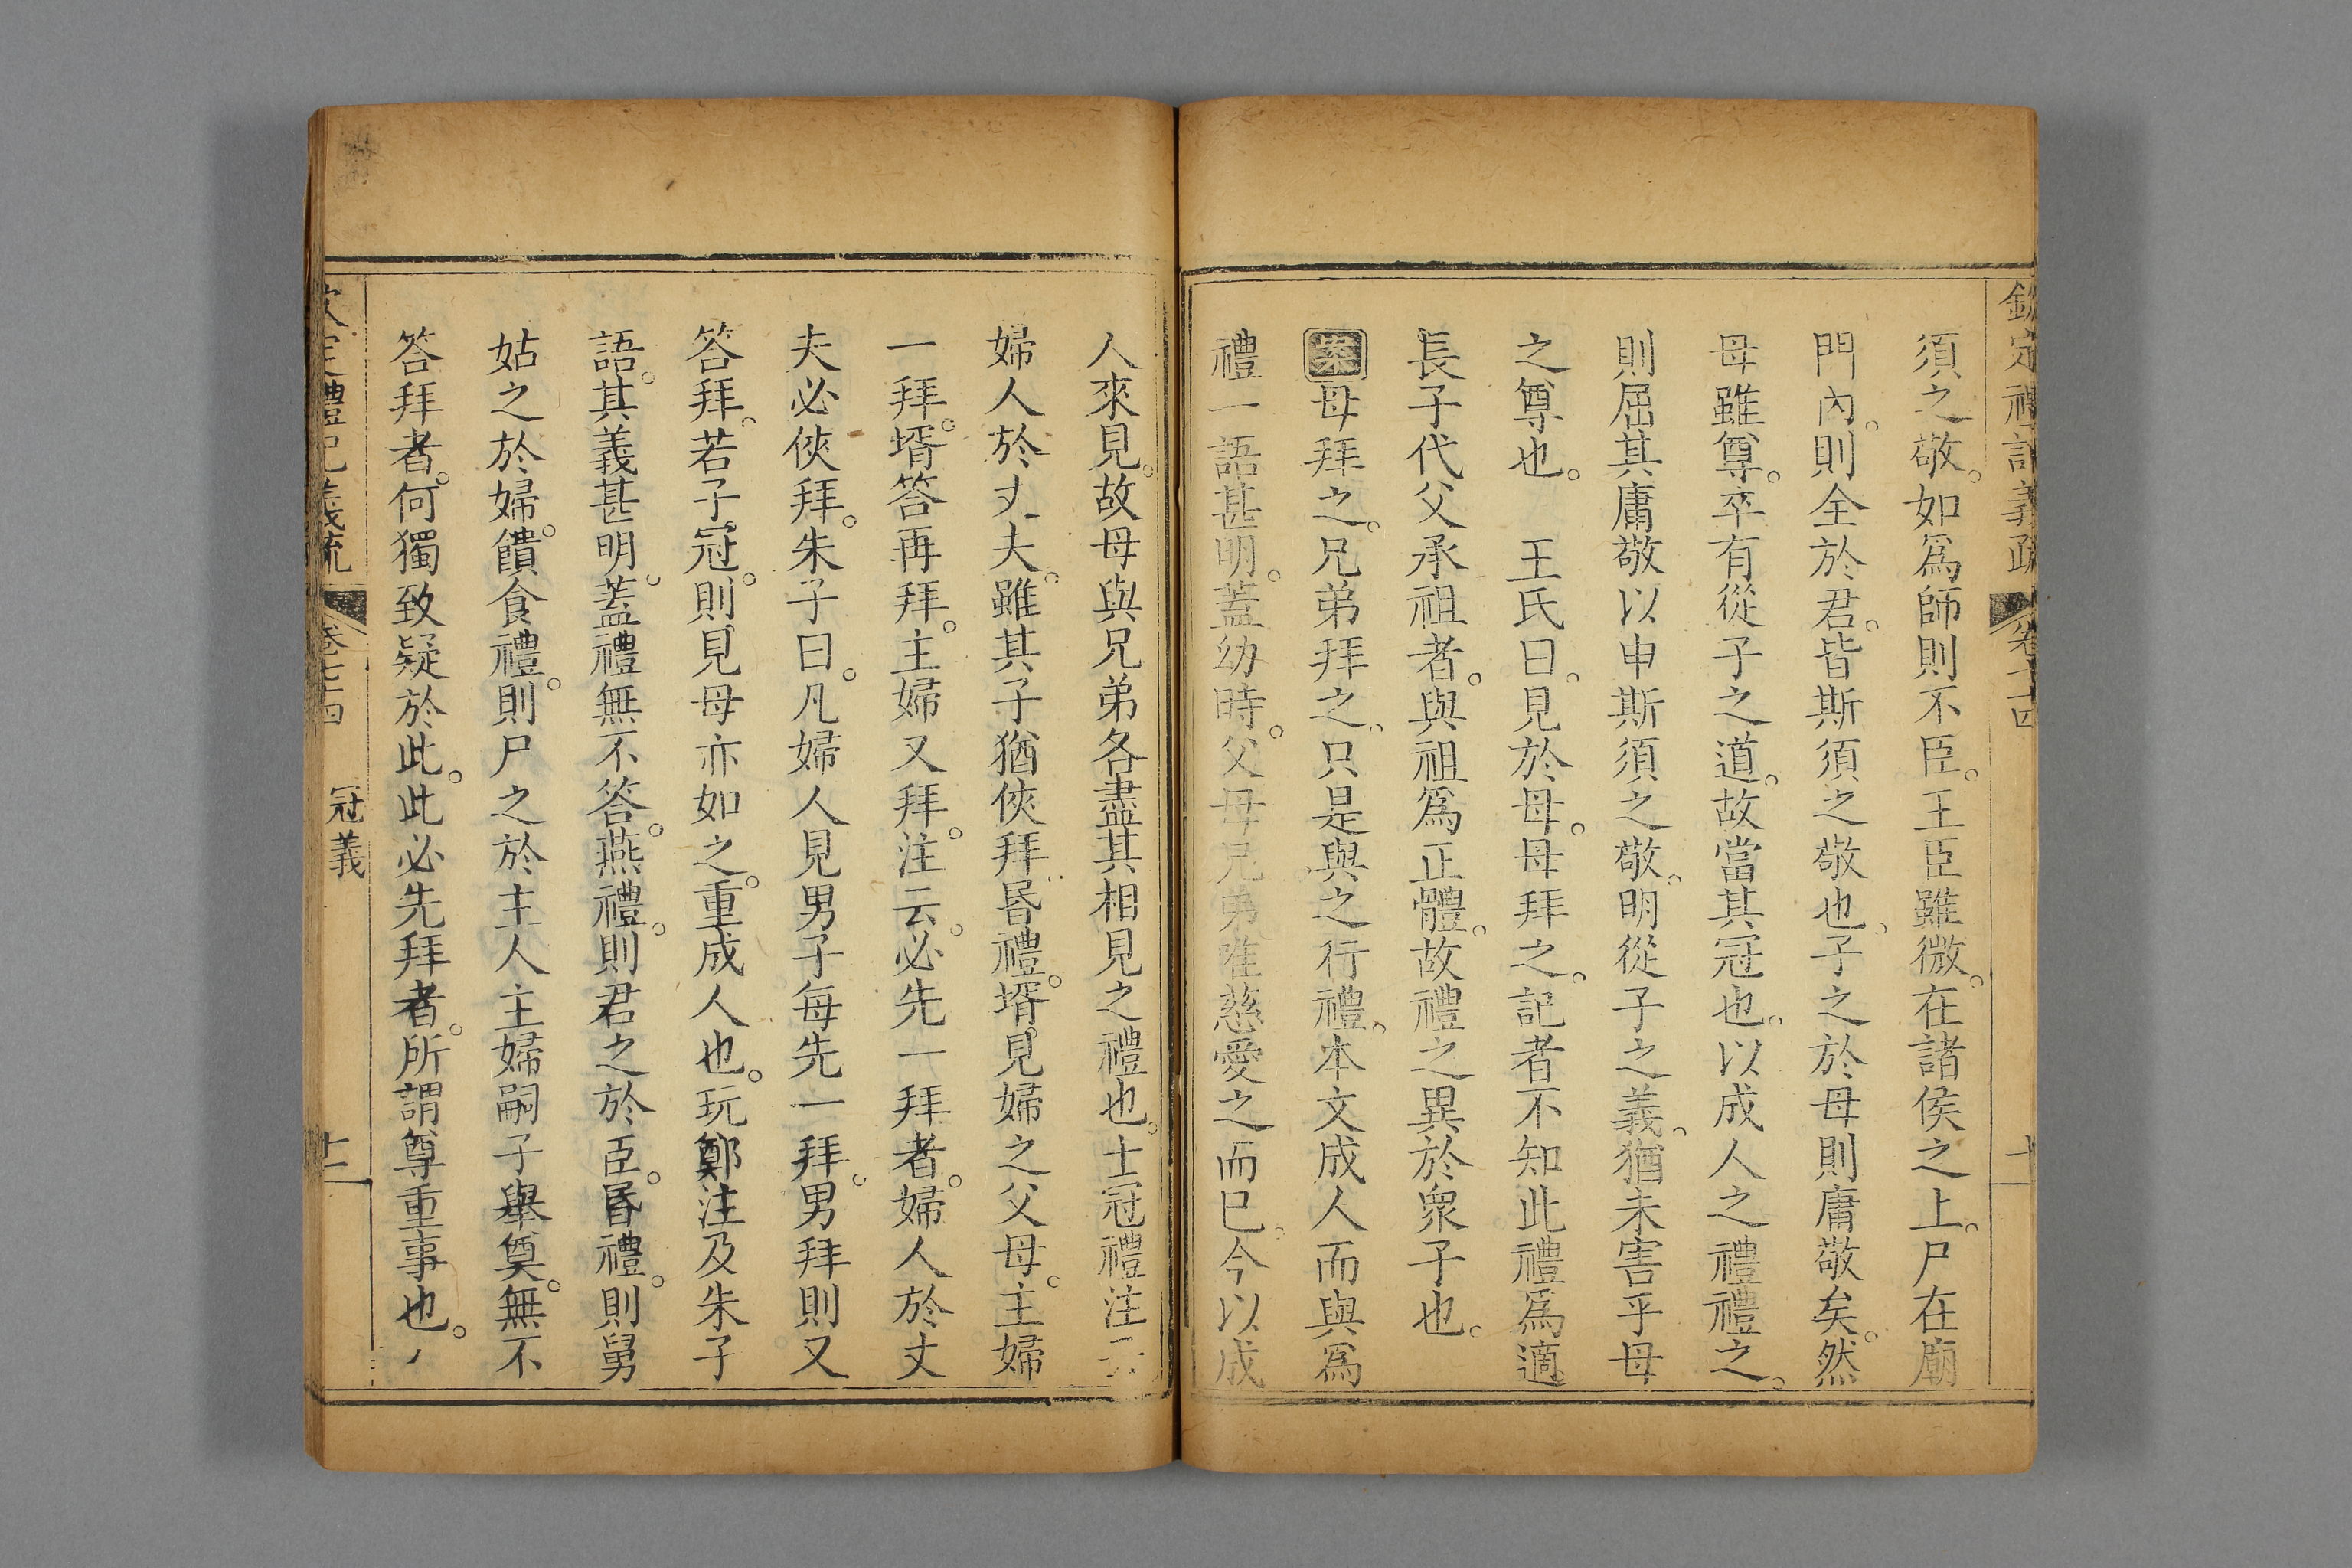 欽定禮記義疏 卷七十四 十
須之敬。如爲師則不臣。王臣雖微。在諸侯之上。尸在廟
門內。則全於君。皆斯須之敬也。子之於母則庸敬矣。然
母雖尊。卒有從子之道。故當其冠也。以成人之禮禮之。
則屈其庸敬以申斯須之敬。明從子之義。猶未害乎母
之尊也。 王氏曰。見於母。母拜之。記者不知此禮爲適
長子代父承祖者。與祖爲正體。故禮之異於衆子也。
案母拜之。兄弟拜之。只是與之行禮。本文成人而與爲
禮一語甚明。蓋幼時。父母兄弟唯慈愛之而已。今以成
人來見。故母與兄弟各盡其相見之禮也。士冠禮注云
婦人於丈夫。雖其子猶俠拜。昬禮。壻見婦之父母。主婦
一拜。壻答再拜。主婦又拜。注云。必先一拜者。婦人於丈
夫必俠拜。朱子曰。凡婦人見男子每先一拜。男拜則又
答拜。若子冠。則見母亦如之。重成人也。玩鄭注及朱子
語。其義甚明。蓋禮無不答。燕禮。則君之於臣。昬禮。則舅
姑之於婦。饋食禮。則尸之於主人主婦嗣子舉奠。無不
答拜者。何獨致疑於此。此必先拜者。所謂尊重事也。
欽定禮記義疏 卷七十四 冠義 十二